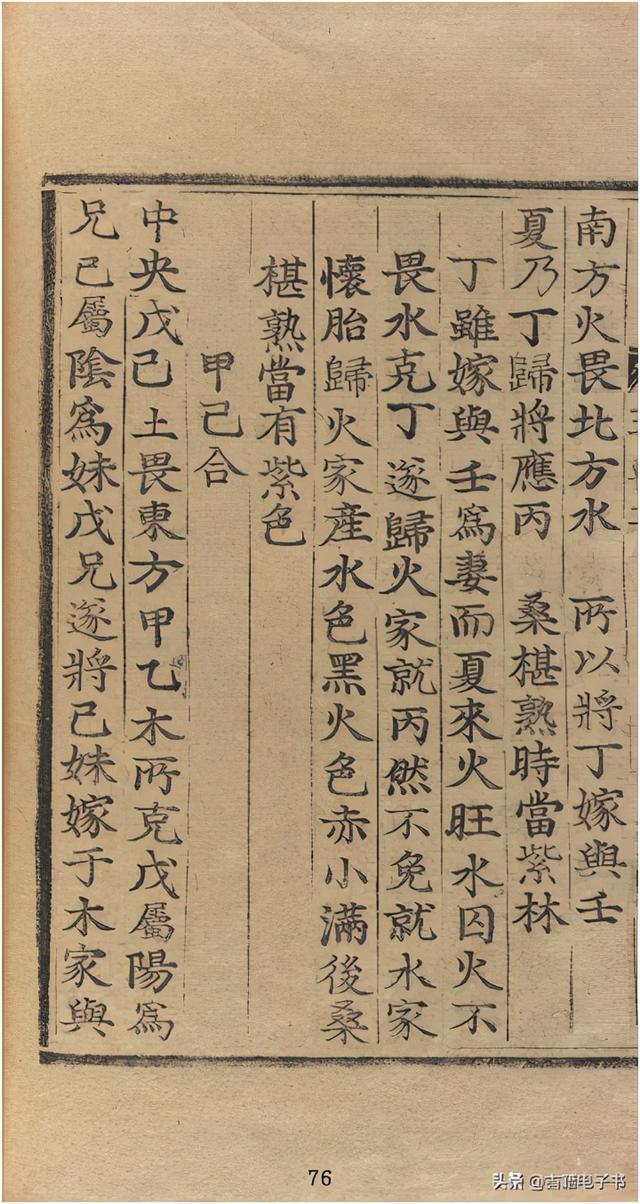 南方火畏北方水　所以將丁嫁與壬
夏乃丁歸將應丙　桑椹熟時當紫林
丁雖嫁與壬爲妻而夏來火旺水囚火不
畏水克丁遂歸火家就丙然不免就水家
懷胎歸火家産水色黑火色赤小滿後桑
椹熟當有紫色
甲己合
中央戊己土畏東方甲乙木所克戊屬陽爲
兄己屬陰爲妹戊兄遂將己妹嫁于木家與
76
头条 @古猫电子书